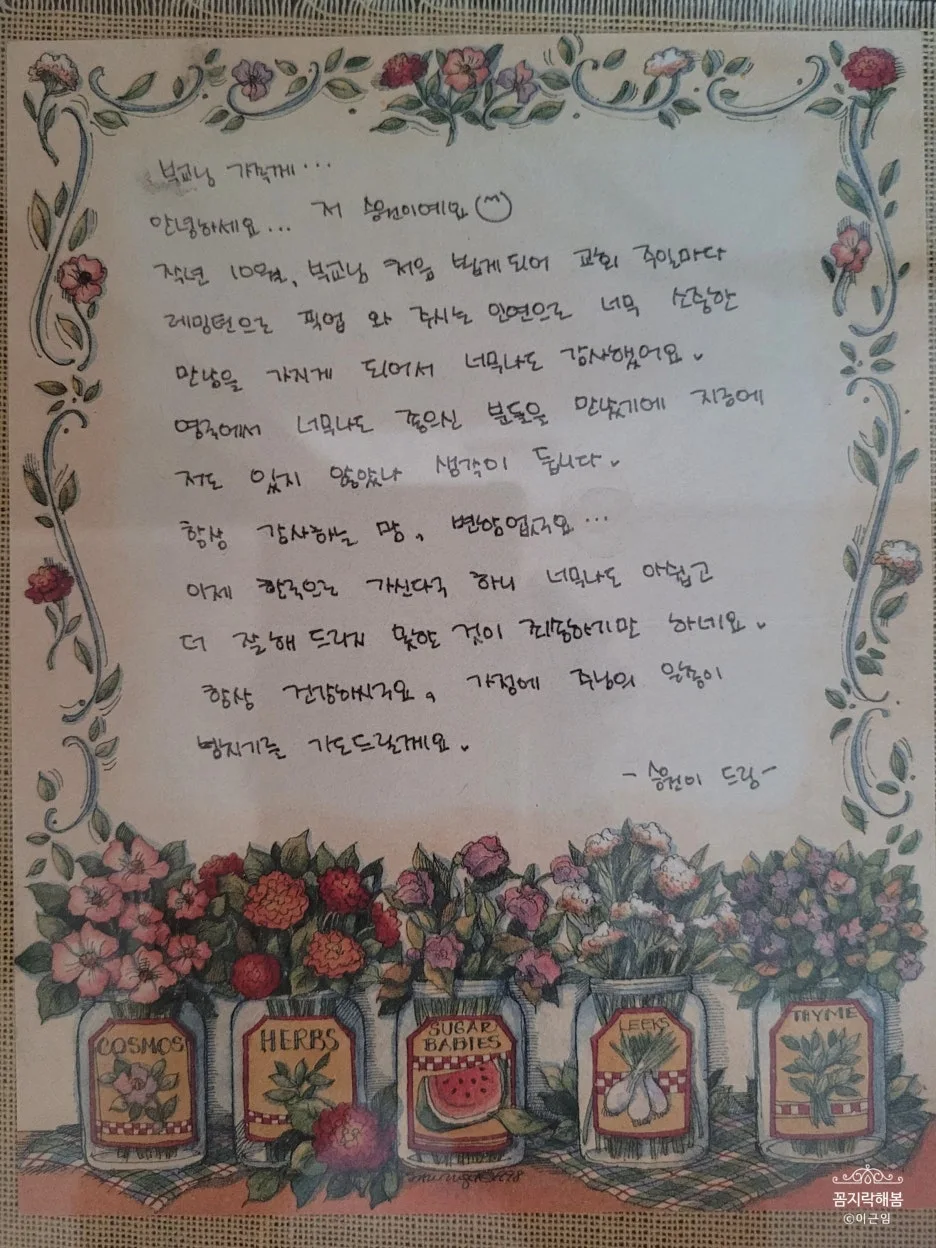 북교님 가족께...
안녕하세요... 저 승원이예요
작년 10월, 북교님 처음 뵙게 되어 교회 주일마다
레밍턴으로 픽업 와 주시는 인연으로 너무 소중한
만남을 가지게 되어서 너무나도 감사했어요.
영국에서 너무나도 좋으신 분들을 만났기에 지금에
저도 있지 않았나 생각이 듭니다.
항상 감사하는 맘, 변함없구요...
이제 한국으로 가신다구 하니 너무나도 아쉽고
더 잘해 드리지 못한 것이 죄송하기만 하네요.
항상 건강하시구요, 가정에 주님의 은총이
넘치기를 기도드릴께요.
-승원이 드림-
COSMOS
HERBS
SUGAR BABIES
LEEKS
THYME
꼼지락해봄
©이근임